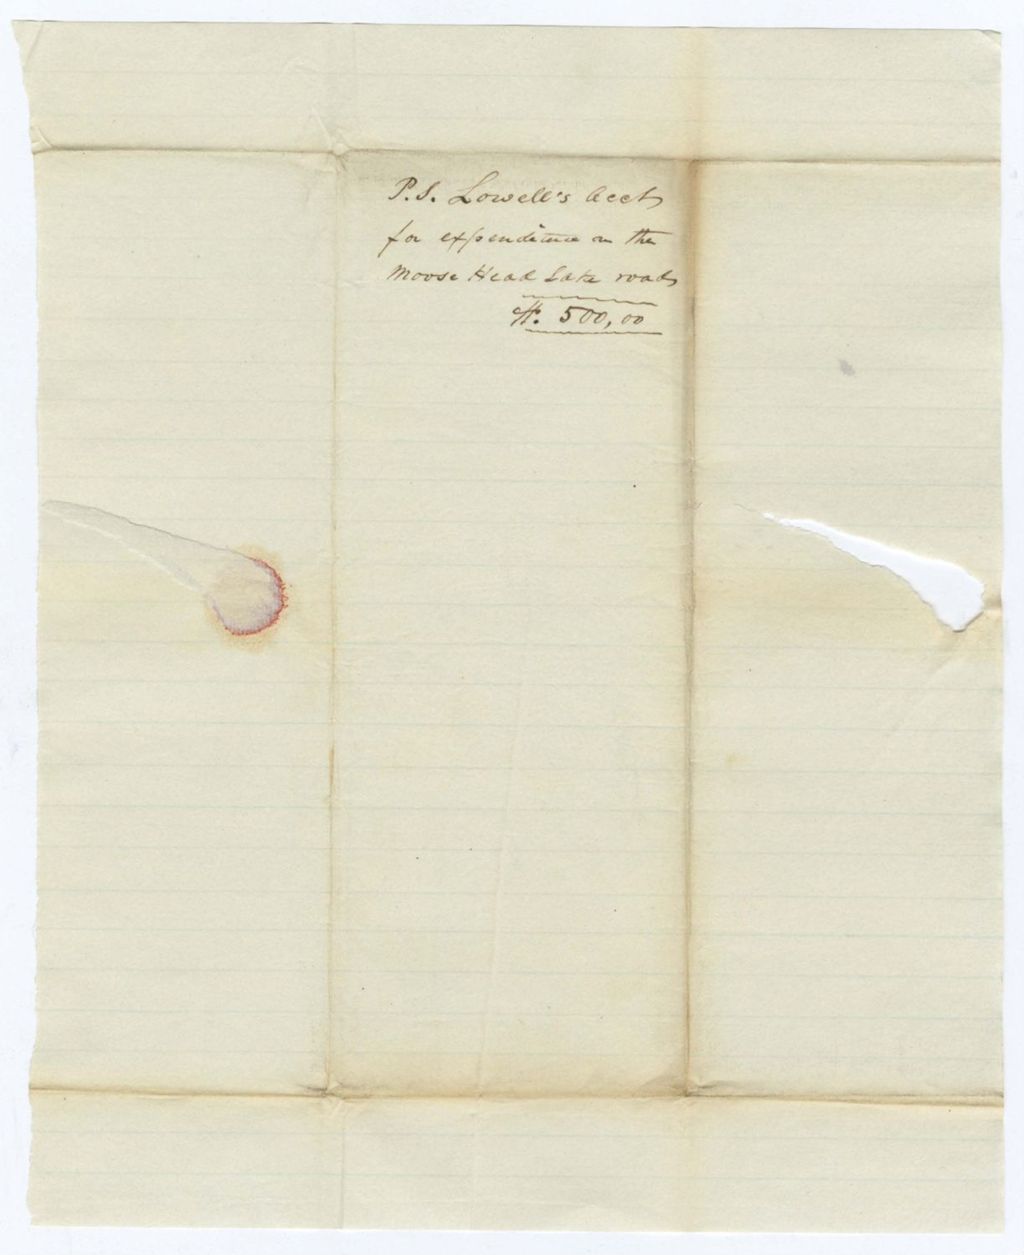 P.S. Lowell's Acct
for expenditure on the
Moose Head Lake road
$. 500,00